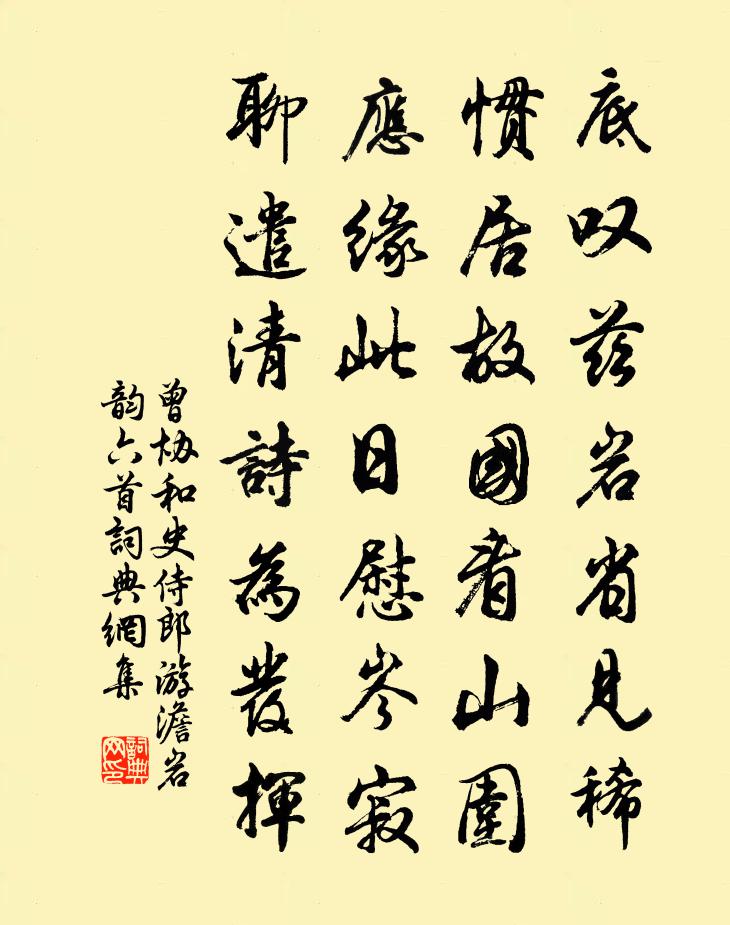 底叹茲岩省見稀
慣居故國看山圍
應緣此日慰岑寂
聊遣清詩為發揮
曾协和史侍郎游澹岩
韵六首詞典網集
詞典網印